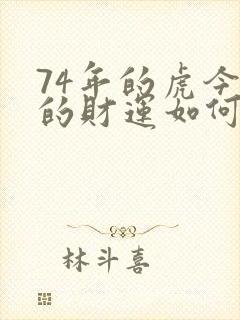 74年的虎今
的財運如何
林斗喜